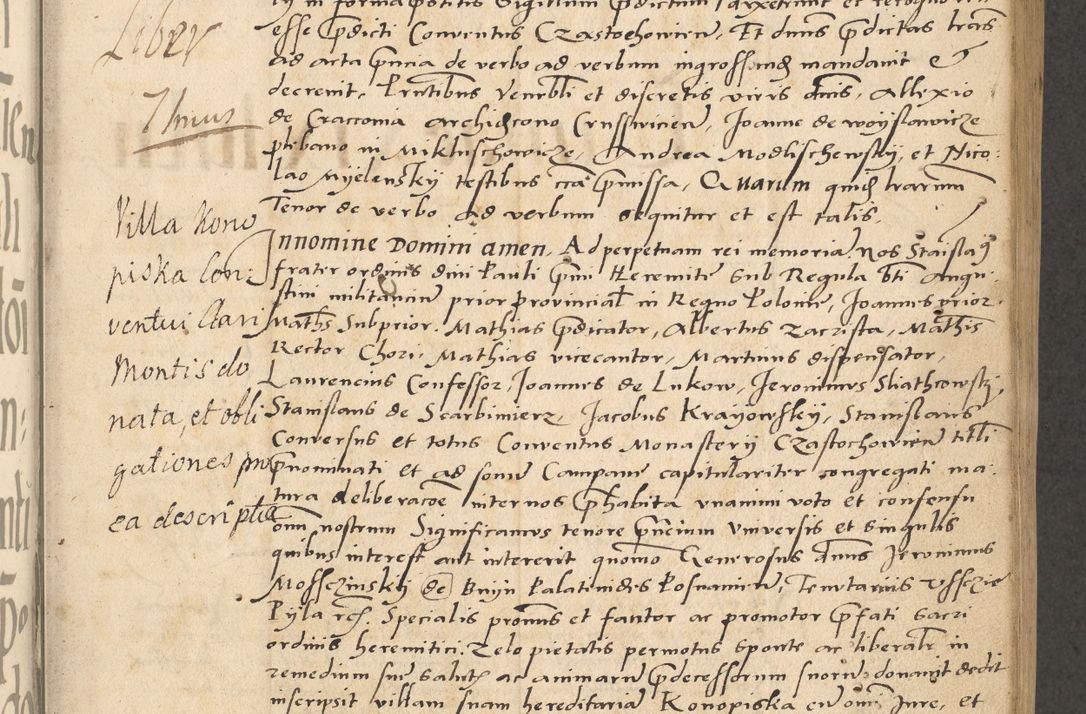 Liber
Thmus
Villa Kono
piska Con:
ventui Clari
Montis do
nata, et obli
gationes pro
ea descripta
esse pdicti Conventus Czastochowien, Et dnus pdictas lras
ad acta pnia de verbo ad verbum ingrossand mandavit &
decrevit, Pntibus Venrbli et discretis viris dnis, Allexio
de Craccovia archidcono Crusswicien, Joanne de Woyslawicze
plbano in Mikluschowicze, Andrea Modlischewskij, et Nico:
lao Myelenskij testibus cca pmissa, Quarum quid lrarum
Tenor de verbo ad verbum sequitur et est talis,
In nomine Domini amen, Ad perpetuam rei memoria, Nos Staislag
frater ordinis divi Pauli pmi Heremite sub Regula bti Augu:
stini militancium prior provincial in Regno Polonie, Joannes prior,
Maths Subprior, Mathias pdicator, Albertus Zacrista, Mathis
Rector Chori, Mathias vicecantor, Martinus dispensator,
Laurencius Confessor, Joannes de Lukow, Jeronimus Sliathcowskj,
Stanislaus de Scarbimierz, Jacobus Krayowskij, Stanislaus
Conversus et totus Conventus Monasterij Czastochowien titli
pnominati et ad sonum Campane capitulariter congregati ma:
tura deliberacoe inter nos phabita unanimi voto et consensu
omi nostrum Significamus tenore pncium Universis et singulis
quibus interest aut intererit quomo Generosus dnus Jeronimus
Mossczinskij de Bnyn Palatinides Posnanien, Tenutarius Usssczie
Pyla rcs, Specialis promus et fautor ac promotor pfati sacri
ordinis heremitici, Zelo pietatis permotus sponte ac liberalr in
remedium sue salutis ac animarum pdecessorum suorum donavit dedit
inscripsit villam suam hereditaria Konopiska cu omi Jure, et